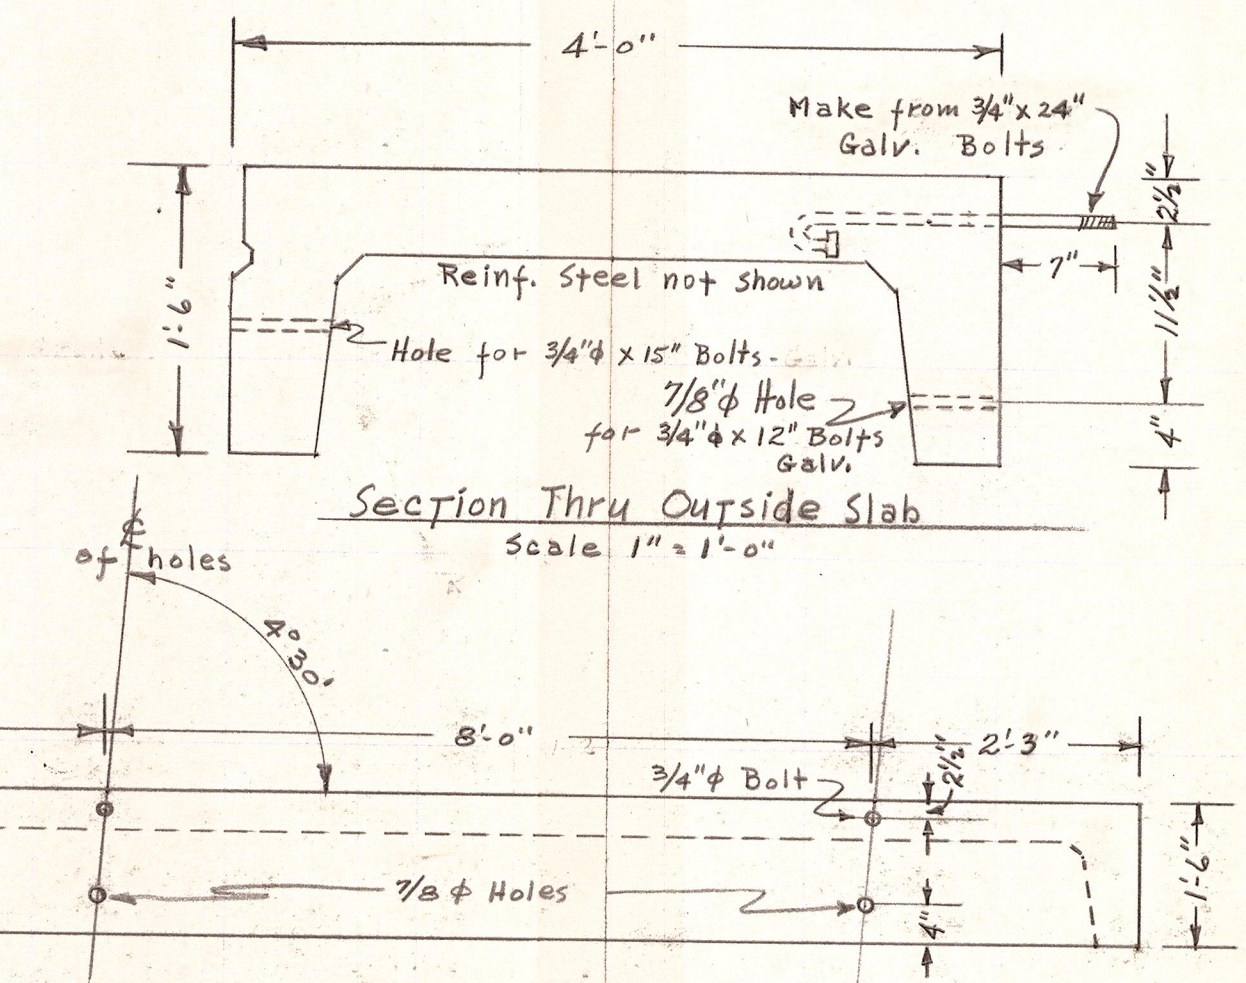 4'-0"
Make from 3/4" x 24"
Galv. Bolts
2½"
7"
11½"
1'-6"
Reinf. Steel not shown
Hole for 3/4"ϕ x 15" Bolts- Galv.
7/8"ϕ Hole
for 3/4"ϕ x 12" Bolts
Galv.
4"
Section Thru Outside Slab
Scale 1" = 1'-0"
℄
of holes
4°30'
8'-0"
2'-3"
2½"
3/4"ϕ Bolt
7/8 ϕ Holes
4"
1'-6"